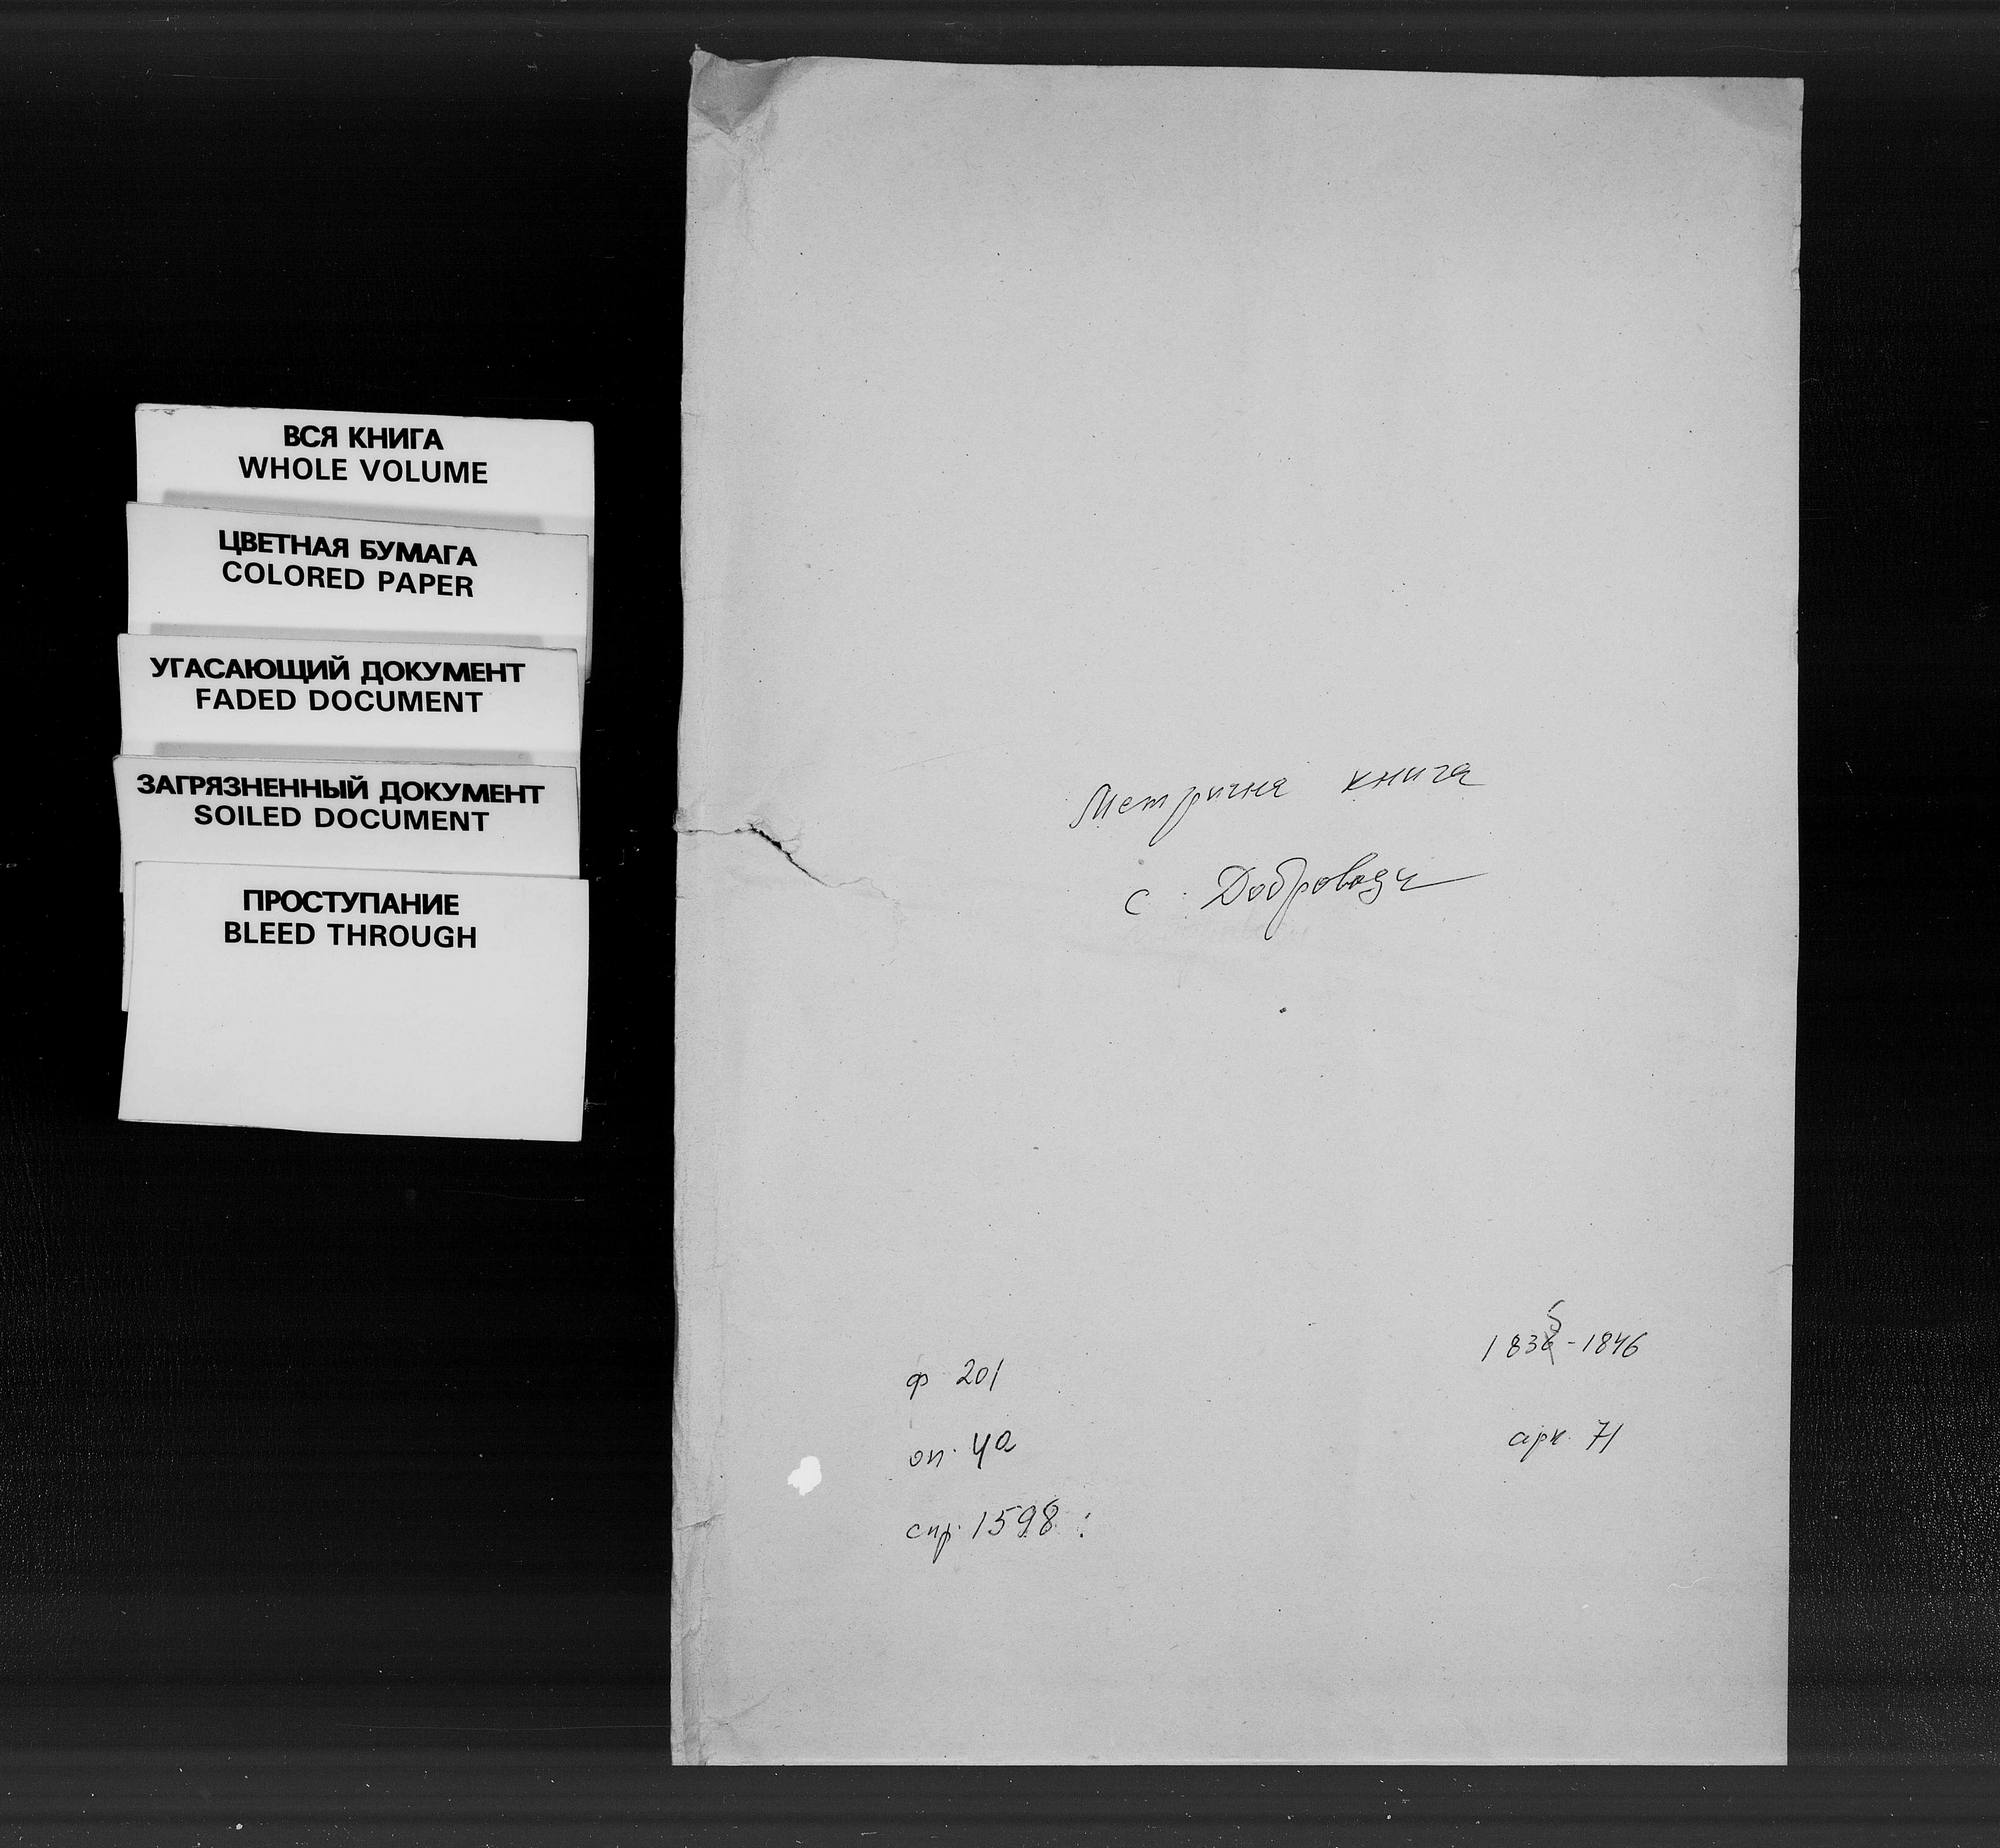 ВСЯ КНИГА
WHOLE VOLUME
ЦВЕТНАЯ БУМАГА
COLORED PAPER
УГАСАЮЩИЙ ДОКУМЕНТ
FADED DOCUMENT
ЗАГРЯЗНЕННЫЙ ДОКУМЕНТ
SOILED DOCUMENT
ПРОСТУПАНИЕ
BLEED THROUGH
Метрична книга
с. Доброводи
1835-1846
ф 201
оп. 4а
арк. 71
спр. 1598